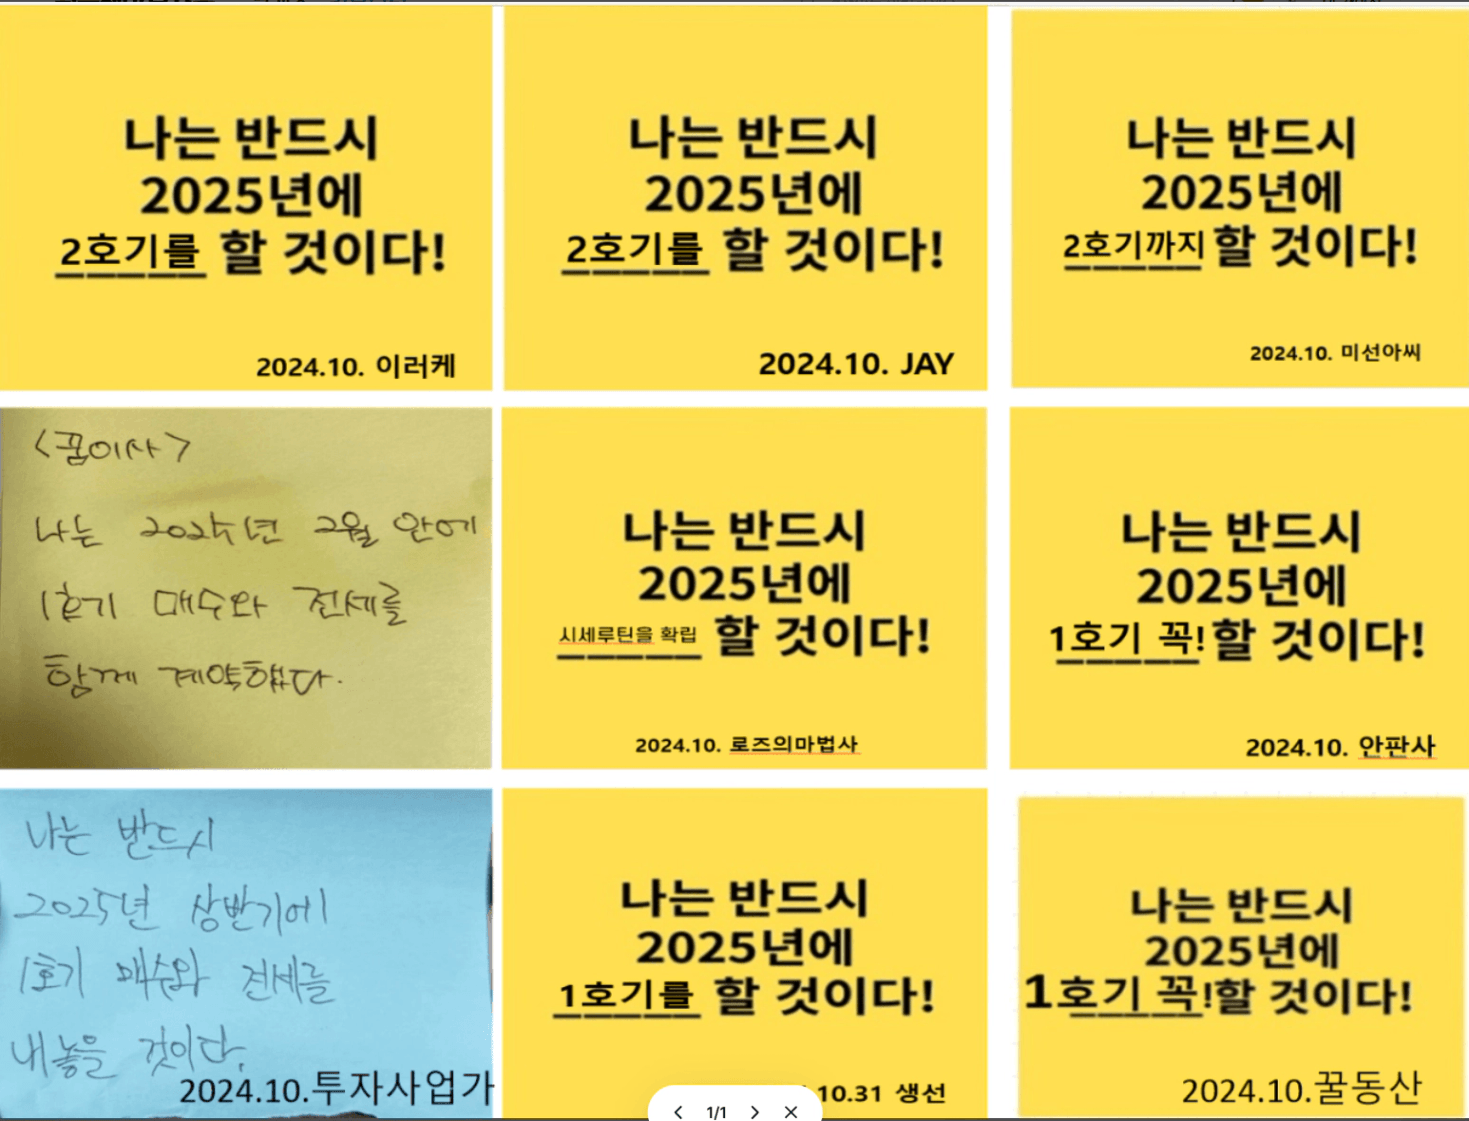 나는 반드시
2025년에
2호기를 할 것이다!
2024.10. 이러케
나는 반드시
2025년에
2호기를 할 것이다!
2024.10. JAY
나는 반드시
2025년에
2호기까지 할 것이다!
2024.10. 미선아씨
<꿈이사>
나는 2025년 2월 안에
1호기 매수와 전세를
함께 계약했다.
나는 반드시
2025년에
시세루틴을 확립 할 것이다!
2024.10. 로즈의마법사
나는 반드시
2025년에
1호기 꼭! 할 것이다!
2024.10. 안판사
나는 반드시
2025년 상반기에
1호기 매수와 전세를
내놓을 것이다.
2024.10.투자사업가
나는 반드시
2025년에
1호기를 할 것이다!
10.31 생선
나는 반드시
2025년에
1호기 꼭!할 것이다!
2024.10.꿀동산
1/1